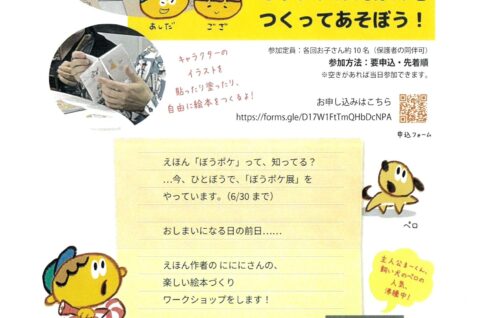 あしだ
ごぎ
つくってあそぼう！
キャラクターの
イラストを
貼ったり塗ったり、
自由に絵本をつくるよ！
参加定員：各回お子さん約10名（保護者の同伴可）
参加方法：要申込・先着順
※空きがあれば当日参加できます。
お申し込みはこちら
https://forms.gle/D17W1FtTmQHbDcNPA
申込フォーム
えほん「ぼうポケ」って、知ってる？
…今、ひとぼうで、「ぼうポケ展」を
やっています。（6/30 まで）
おしまいになる日の前日……
えほん作者の にににさんの、
楽しい絵本づくり
ワークショップをします！
ペロ
主人公まーくん、
飼い犬のペロの
人気、
沸騰中！